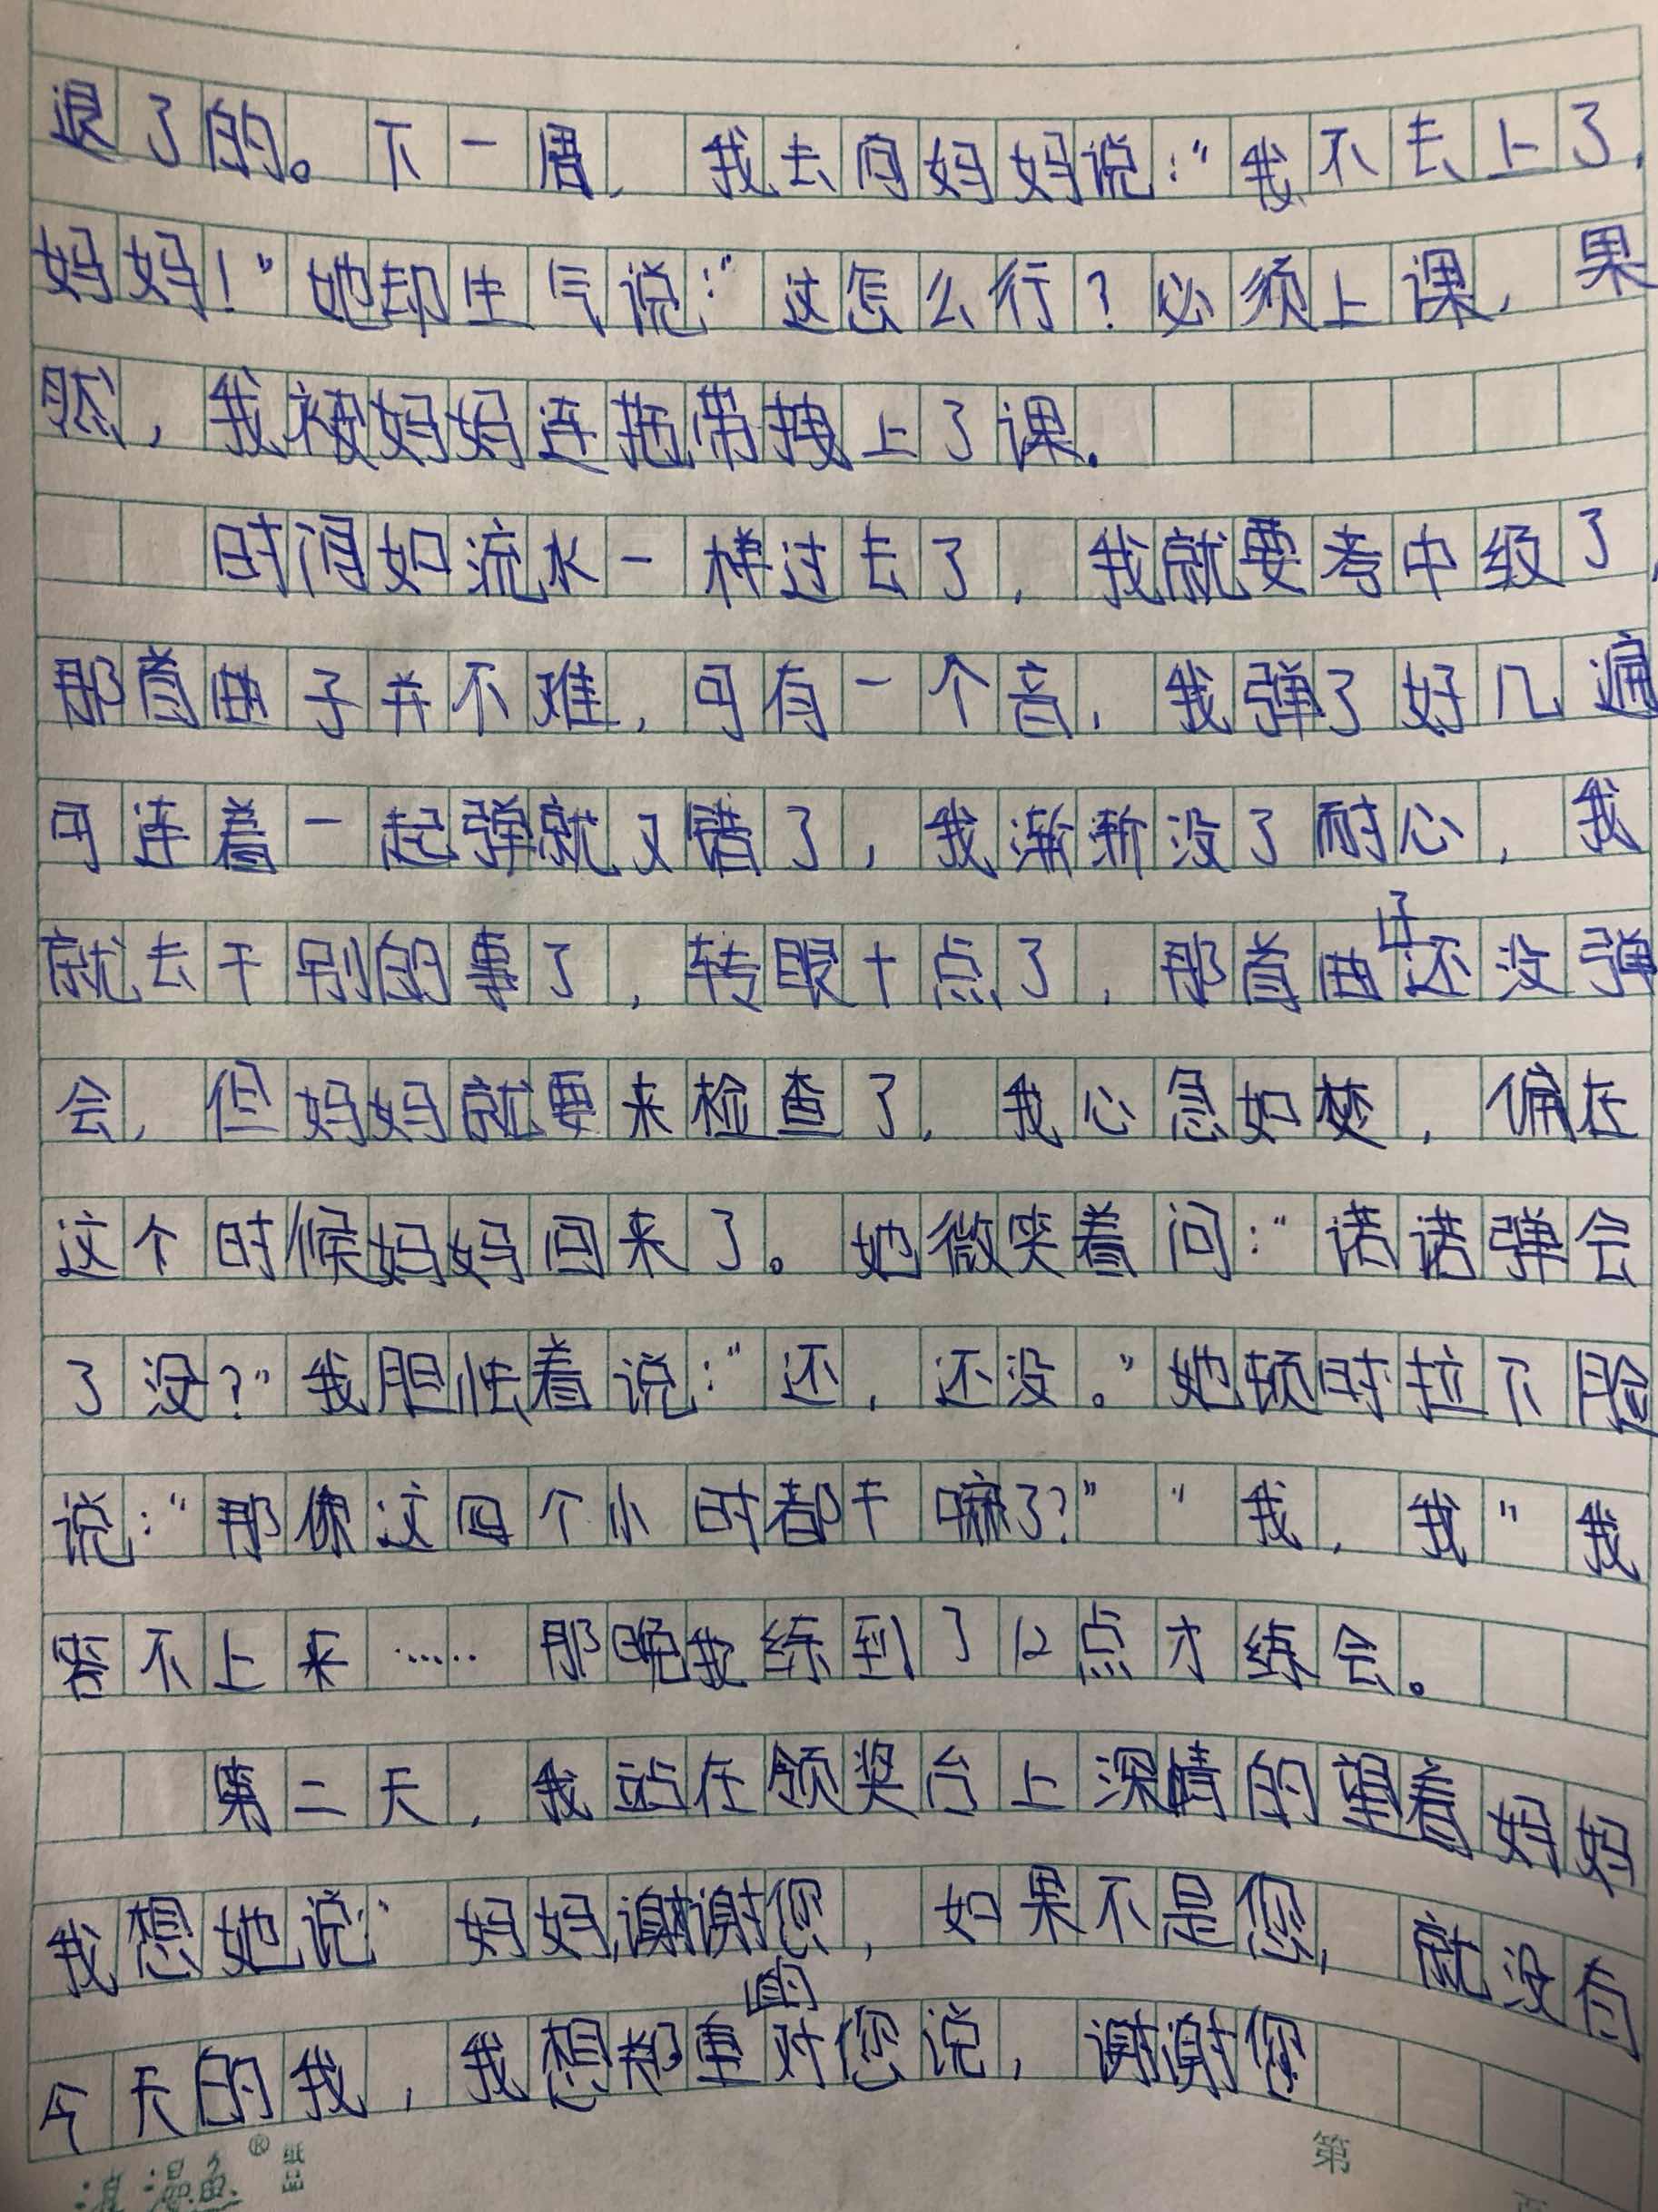 退了的。下一周，我去向妈妈说:“我不去上了，
妈妈！”她却生气说:“这怎么行？必须上课，果
然，我被妈妈连拖带拽上了课。
时间如流水一样过去了，我就要考中级了，
那首曲子并不难，可有一个音，我弹了好几遍
可连着一起弹就又错了，我渐渐没了耐心，我
就去干别的事了，转眼十点了，那首曲子还没弹
会，但妈妈就要来检查了，我心急如焚，偏在
这个时候妈妈回来了。她微笑着问:“诺诺弹会
了没？”我胆怯着说:“还，还没。”她顿时拉下脸
说:“那你这四个小时都干嘛了？”“我，我”我
答不上来……那晚我练到了12点才练会。
第二天，我站在领奖台上深情的望着妈妈
我想她说:“妈妈,谢谢您，如果不是您，就没有
今天的我，我想郑重的对您说，谢谢您
浪漫鱼®纸品
第